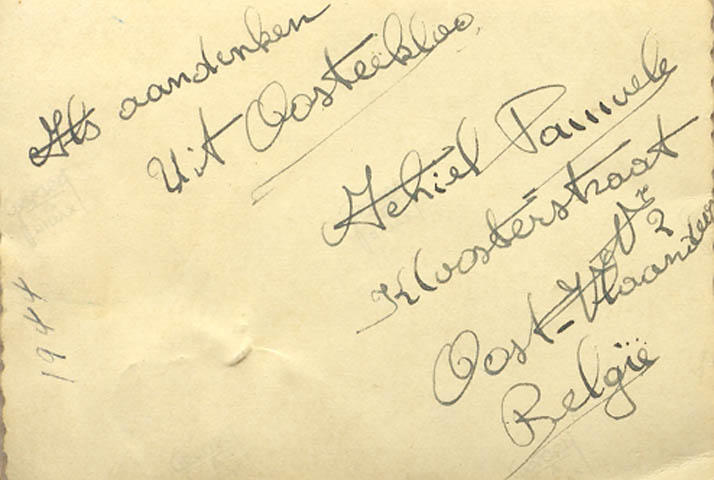 Als aandenken
Uit Oosteekloo
Achiel Pauwels
Kloosterstraat
Nr 2
Oost-Vlaanderen
België
1944